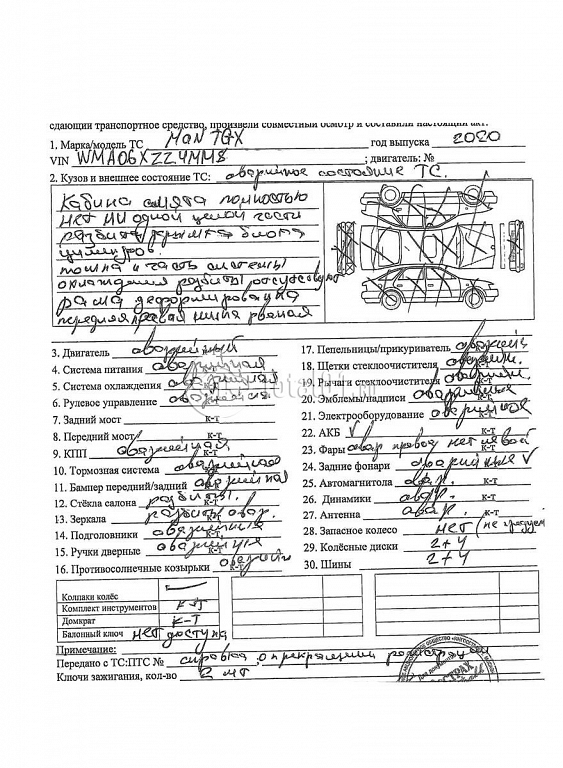 сдающий транспортное средство, произвели совместный осмотр и составили настоящий акт.
1. Марка/модель ТС MAN TGX год выпуска 2020
VIN WMA06XZZ4MM8 ; двигатель: №
2. Кузов и внешнее состояние ТС: аварийное состояние ТС.
Кабина смята полностью
нет ни одной целой части
разбита крышка блока
цилиндров.
и часть системы
охлаждения разбиты отсутствуют
рама деформирована
передняя правая шина рваная
3. Двигатель аварийный
4. Система питания аварийная
5. Система охлаждения аварийная
6. Рулевое управление аварийная
7. Задний мост к-т
8. Передний мост к-т
9. КПП аварийная
10. Тормозная система аварийная
11. Бампер передний/задний аварийная
12. Стёкла салона разбиты.
13. Зеркала разбиты авар.
14. Подголовники аварийные
15. Ручки дверные аварийные
16. Противосолнечные козырьки к-т
17. Пепельницы/прикуриватель аварийн
18. Щетки стеклоочистителя аварийн.
19. Рычаги стеклоочистителя аварийн.
20. Эмблемы/надписи аварийные
21. Электрооборудование аварийное
22. АКБ V к-т
23. Фары авар правой нет левой
24. Задние фонари аварийные V
25. Автомагнитола авар. к-т
26. Динамики авар. к-т
27. Антенна авар. к-т
28. Запасное колесо нет
29. Колёсные диски 2+4
30. Шины 2+4
Колпаки колёс —
Комплект инструментов к-т
Домкрат к-т
Балонный ключ нет доступа
Примечание:
Передано с ТС:ПТС № справка о прекращении регистрации
Ключи зажигания, кол-во 2 шт